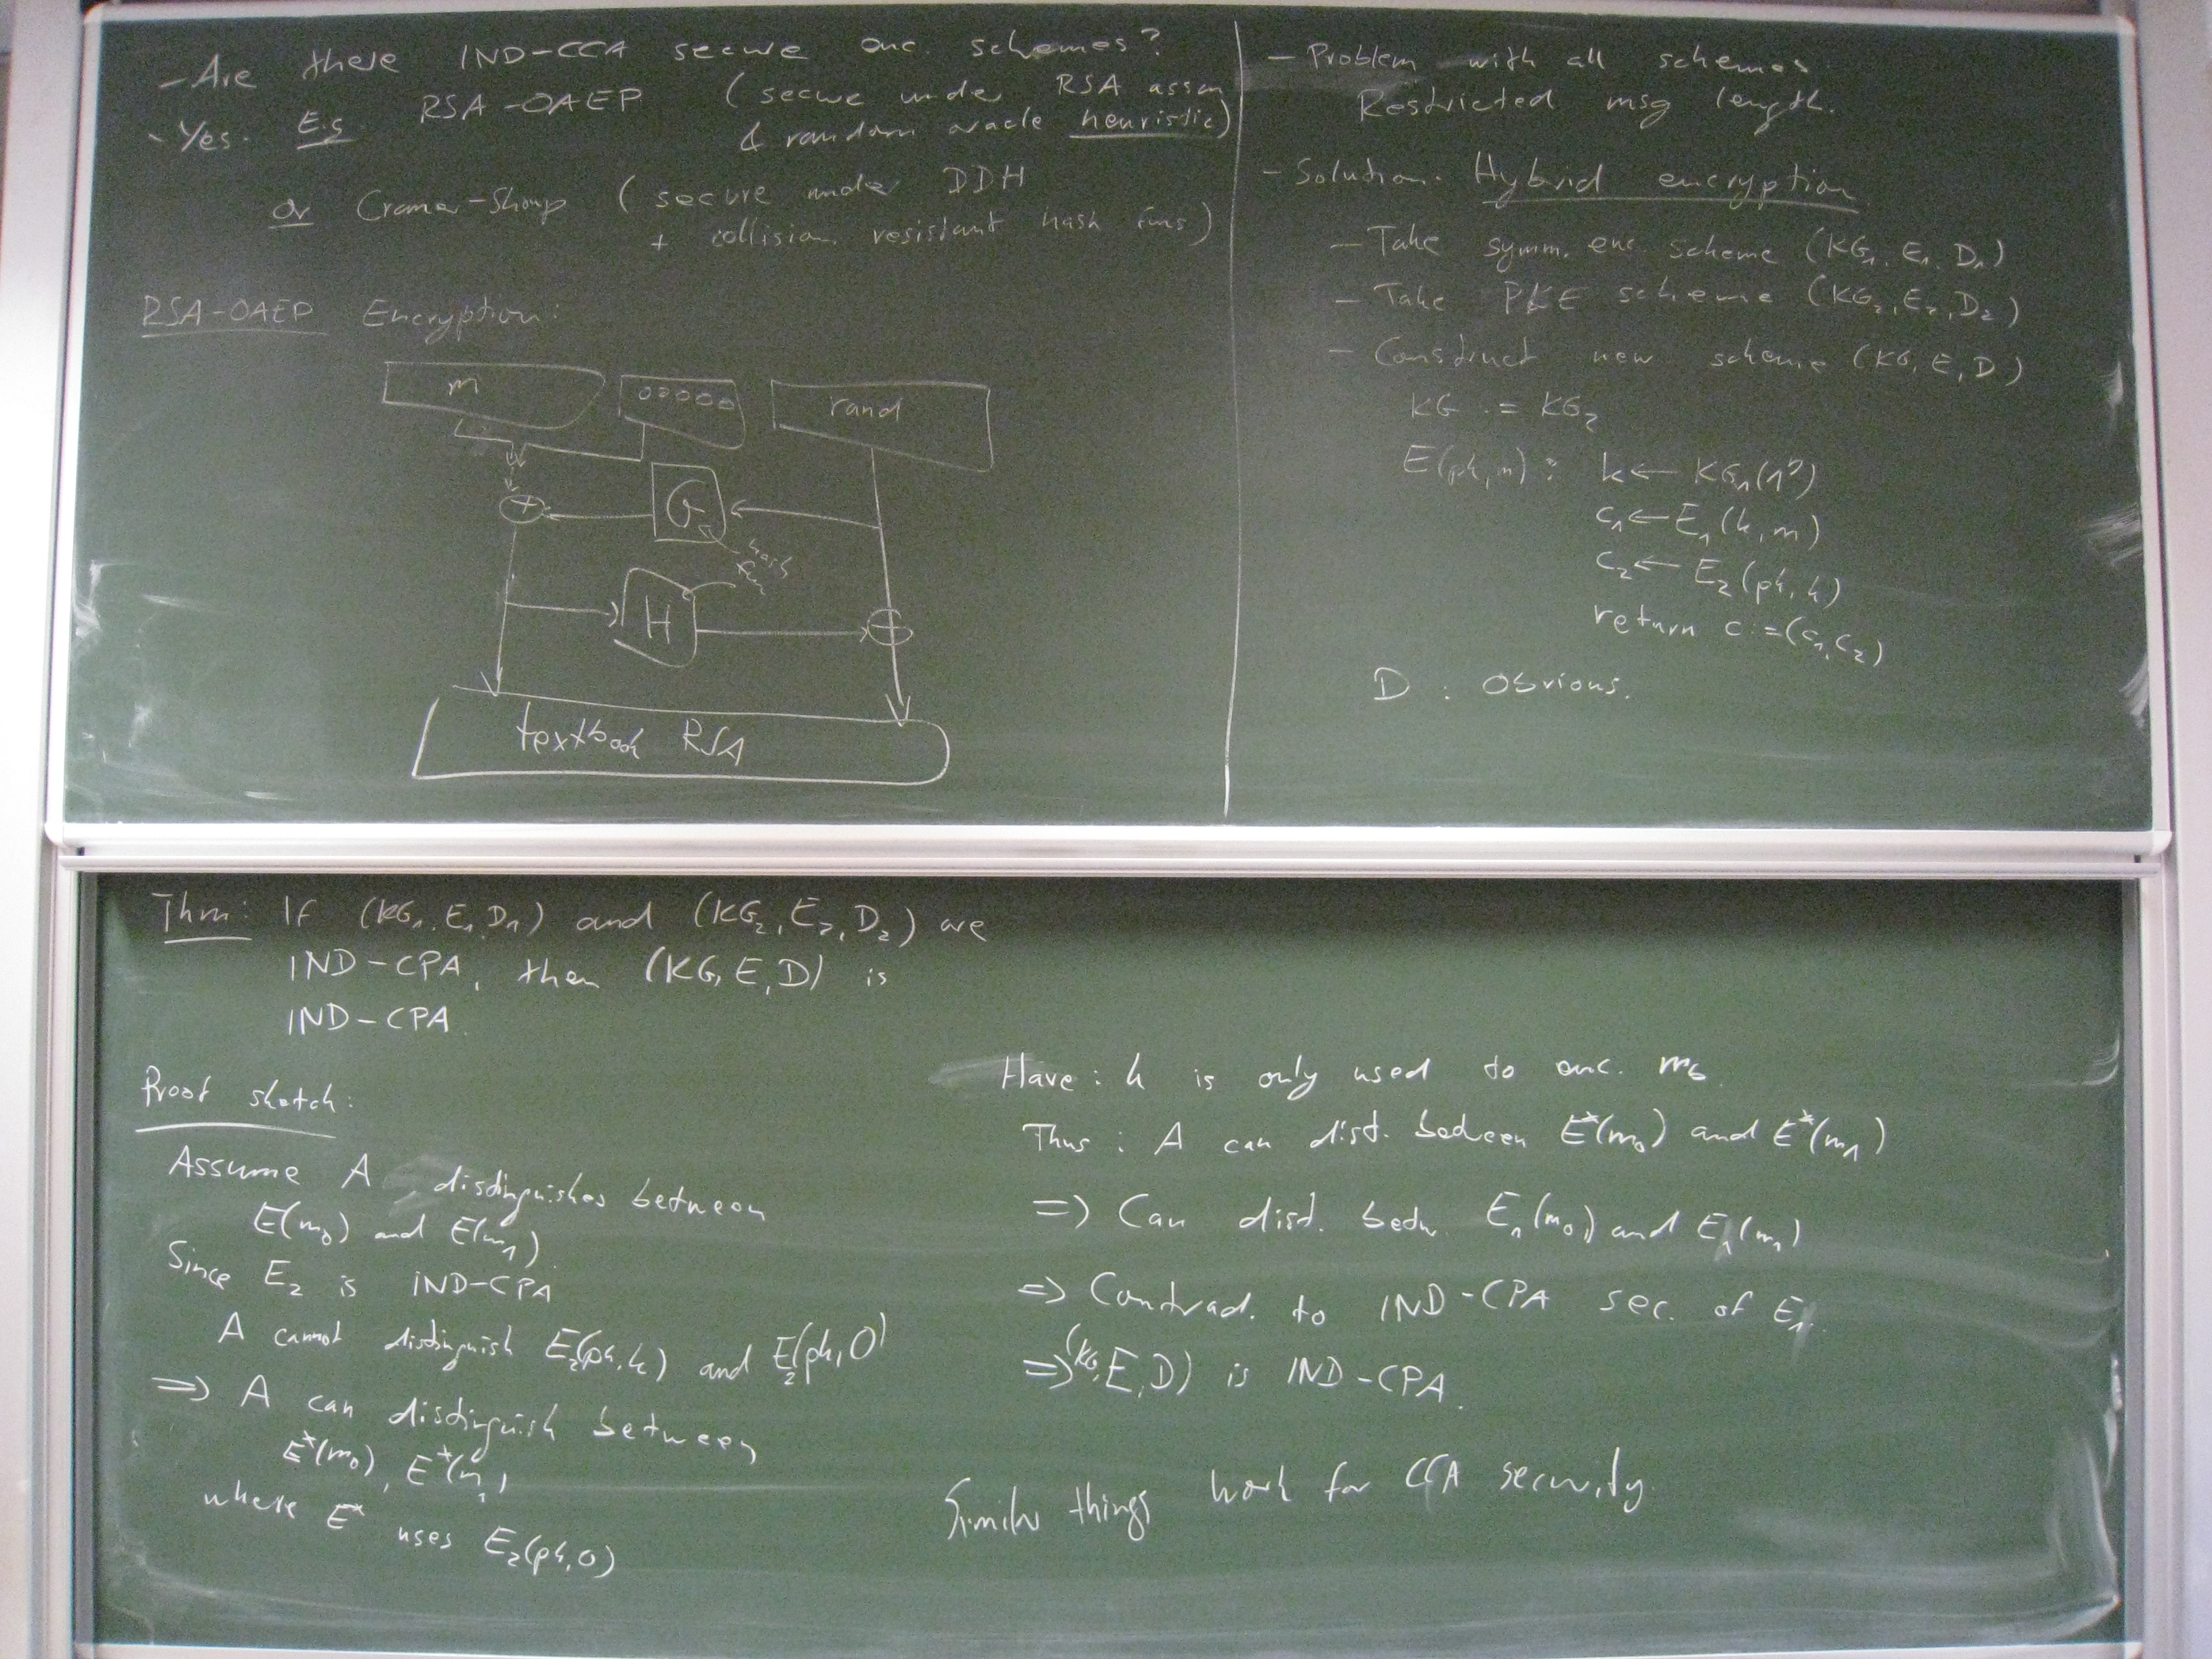 - Are there IND-CCA secure enc. schemes?
- Yes. E.g. RSA-OAEP (secure under RSA assm
& random oracle heuristic)
or Cramer-Shoup (secure under DDH
+ collision resistant hash funs)
RSA-OAEP Encryption:
m 00000 rand
+ G
hash fun
H +
textbook RSA
- Problem with all schemes:
Restricted msg length.
- Solution: Hybrid encryption
- Take symm. enc. scheme (KG₁, E₁, D₁)
- Take PKE scheme (KG₂, E₂, D₂)
- Construct new scheme (KG, E, D)
KG := KG₂
E(pk, m): k ← KG₁(1^η)
c₁ ← E₁(k, m)
c₂ ← E₂(pk, k)
return c := (c₁, c₂)
D: Obvious.
Thm: If (KG₁, E₁, D₁) and (KG₂, E₂, D₂) are
IND-CPA, then (KG, E, D) is
IND-CPA.
Proof sketch:
Assume A distinguishes between
E(m₀) and E(m₁).
Since E₂ is IND-CPA
A cannot distinguish E₂(pk, k) and E₂(pk, 0)
=> A can distinguish between
E*(m₀), E*(m₁)
where E* uses E₂(pk, 0)
Have: k is only used to enc. m_b.
Thus: A can dist. between E*(m₀) and E*(m₁)
=> Can dist. betw. E₁(m₀) and E₁(m₁)
=> Contrad. to IND-CPA sec. of E₁.
=> (KG, E, D) is IND-CPA.
Similar things work for CCA security.